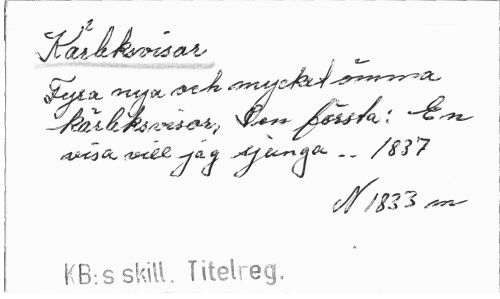 Kärleksvisar
Fyra nya och mycket ömma
kärleksvisor, Den första: En
visa vill jag sjunga .. 1837
N 1833 m
KB:s skill. Titelreg.